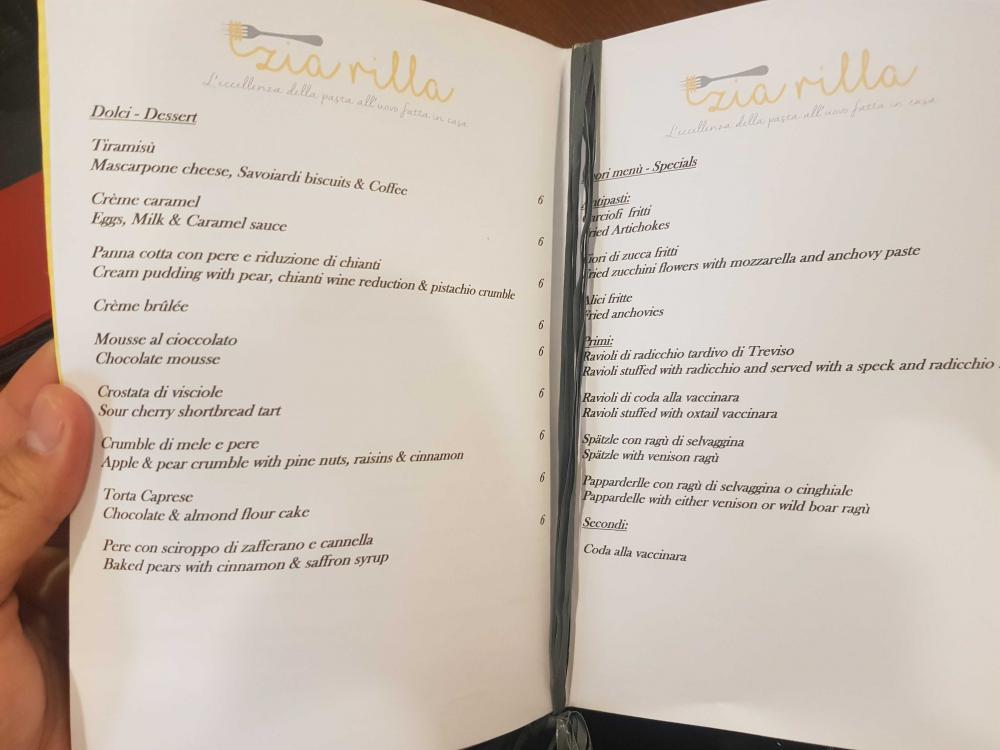 zia rilla
L'eccellenza della pasta all'uovo fatta in casa
Dolci - Dessert
Tiramisù
Mascarpone cheese, Savoiardi biscuits & Coffee
6
Crème caramel
Eggs, Milk & Caramel sauce
6
Panna cotta con pere e riduzione di chianti
Cream pudding with pear, chianti wine reduction & pistachio crumble
6
Crème brûlée
6
Mousse al cioccolato
Chocolate mousse
6
Crostata di visciole
Sour cherry shortbread tart
6
Crumble di mele e pere
Apple & pear crumble with pine nuts, raisins & cinnamon
6
Torta Caprese
Chocolate & almond flour cake
6
Pere con sciroppo di zafferano e cannella
Baked pears with cinnamon & saffron syrup
6
zia rilla
L'eccellenza della pasta all'uovo fatta in casa
menù - Specials
fritti
Artichokes
di zucca fritti
zucchini flowers with mozzarella and anchovy paste
fritte
anchovies
Primi:
Ravioli di radicchio tardivo di Treviso
Ravioli stuffed with radicchio and served with a speck and radicchio
Ravioli di coda alla vaccinara
Ravioli stuffed with oxtail vaccinara
Spätzle con ragù di selvaggina
Spätzle with venison ragù
Papparderlle con ragù di selvaggina o cinghiale
Pappardelle with either venison or wild boar ragù
Secondi:
Coda alla vaccinara